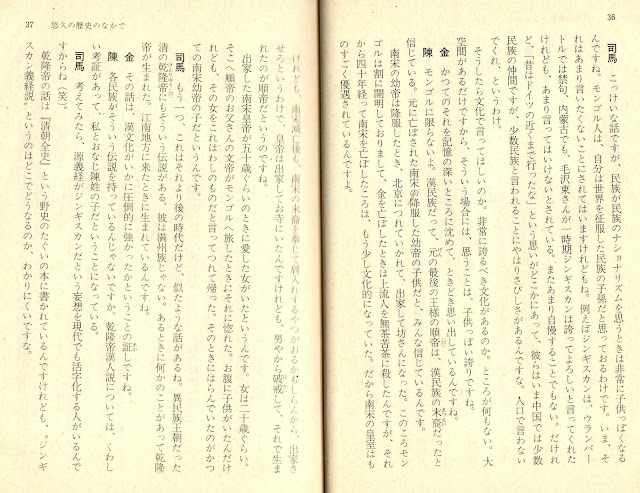 36
司馬 こっけいな話ですが、民族が民族のナショナリズムを思うときは非常に子供っぽくなる
んですね。モンゴル人は、自分は世界を征服した民族の子孫だと思っておるわけです。いま、そ
れはあまり言いたくないことにされてはいますけれどもね。例えばジンギスカンは、ウランバー
トルでは禁句、内蒙古でも、毛沢東さんが一時期ジンギスカンは誇ってよろしいと言ってくれた
けれども、あまり言ってはいけないとされている。またあまり自慢することでもない。だけれ
ど、「昔はドイツの近くまで行ったな」という思いがどこかにあって、彼らはいま中国では少数
民族の仲間ですが、少数民族と言われることにやはりさびしさがあるんですな。人口で言わない
でくれ、というわけ。
そうしたら文化で言ってほしいのか。非常に誇るべき文化があるのか。ところが何もない。大
空間があるだけですから、そういう場合には、思うことは、子供っぽい誇りですな。
金 かつてのそれを記憶の深いところに沈めて、ときどき思い出しているんですね。
陳 モンゴルに限らないよ。漢民族だって、元の最後の王様の順帝は、漢民族の末裔だったと
信じている。元に亡ぼされた南宋の降服した幼帝の子供だと、みんな信じているんです。
南宋の幼帝は降服したとき、北京につれていかれて、出家して坊さんになった。このころモン
ゴルは割に開明しておりまして、金を亡ぼしたときは上流人を無茶苦茶に殺したんですが、それ
から四十年経って南宋を亡ぼしたころは、もう少し文化的になっていった。だから南宋の皇室はも
のすごく優遇されているんですよ。
37 悠久の歴史のなかで
けれども、南宋滅亡後も、南宋の末裔を奉じて
せろというわけで、皇帝は出家してお寺にいたんですけれども、男やから破戒して、それで生ま
れたのが順帝だというのですな。
出家した南宋皇帝が五十歳ぐらいのときに愛した女がいたというんです。女は二十歳ぐらい。
そこへ順帝のお父さんの文帝がモンゴルへ旅したときにそれに惚れた。お腹に子供がいたんだけ
れども、その女をこれはわしのものだと言ってつれて帰った。そのときにはらんでいたのがかつ
ての南宋幼帝の子だというんです。
司馬 もう一つ、これはそれより後の時代だけど、似たような話があるね。異民族王朝だった
清の乾隆帝にもそういう伝説がある。彼は満州族じゃない。あるときに何かのことがあって乾隆
帝が生まれた。江南地方に来たときに生まれているんですね。
金 その話は、漢文化がいかに圧倒的に強かったかということの証しですね。
陳 各民族がそういう伝説を持っているんじゃないですか。乾隆帝漢人説については、くわし
い考証があって、私とおなじ陳姓の子だということになっている。
司馬 考えてみたら、源義経がジンギスカンだという妄想を現代でも活字化する人がいるんで
すからね（笑）。
乾隆帝の話は『清朝全史』という野史のたぐいの本に書かれているんですけれども、“ジンギ
スカン義経説”というのはどこでどうなるのか、わかりにくいですな。